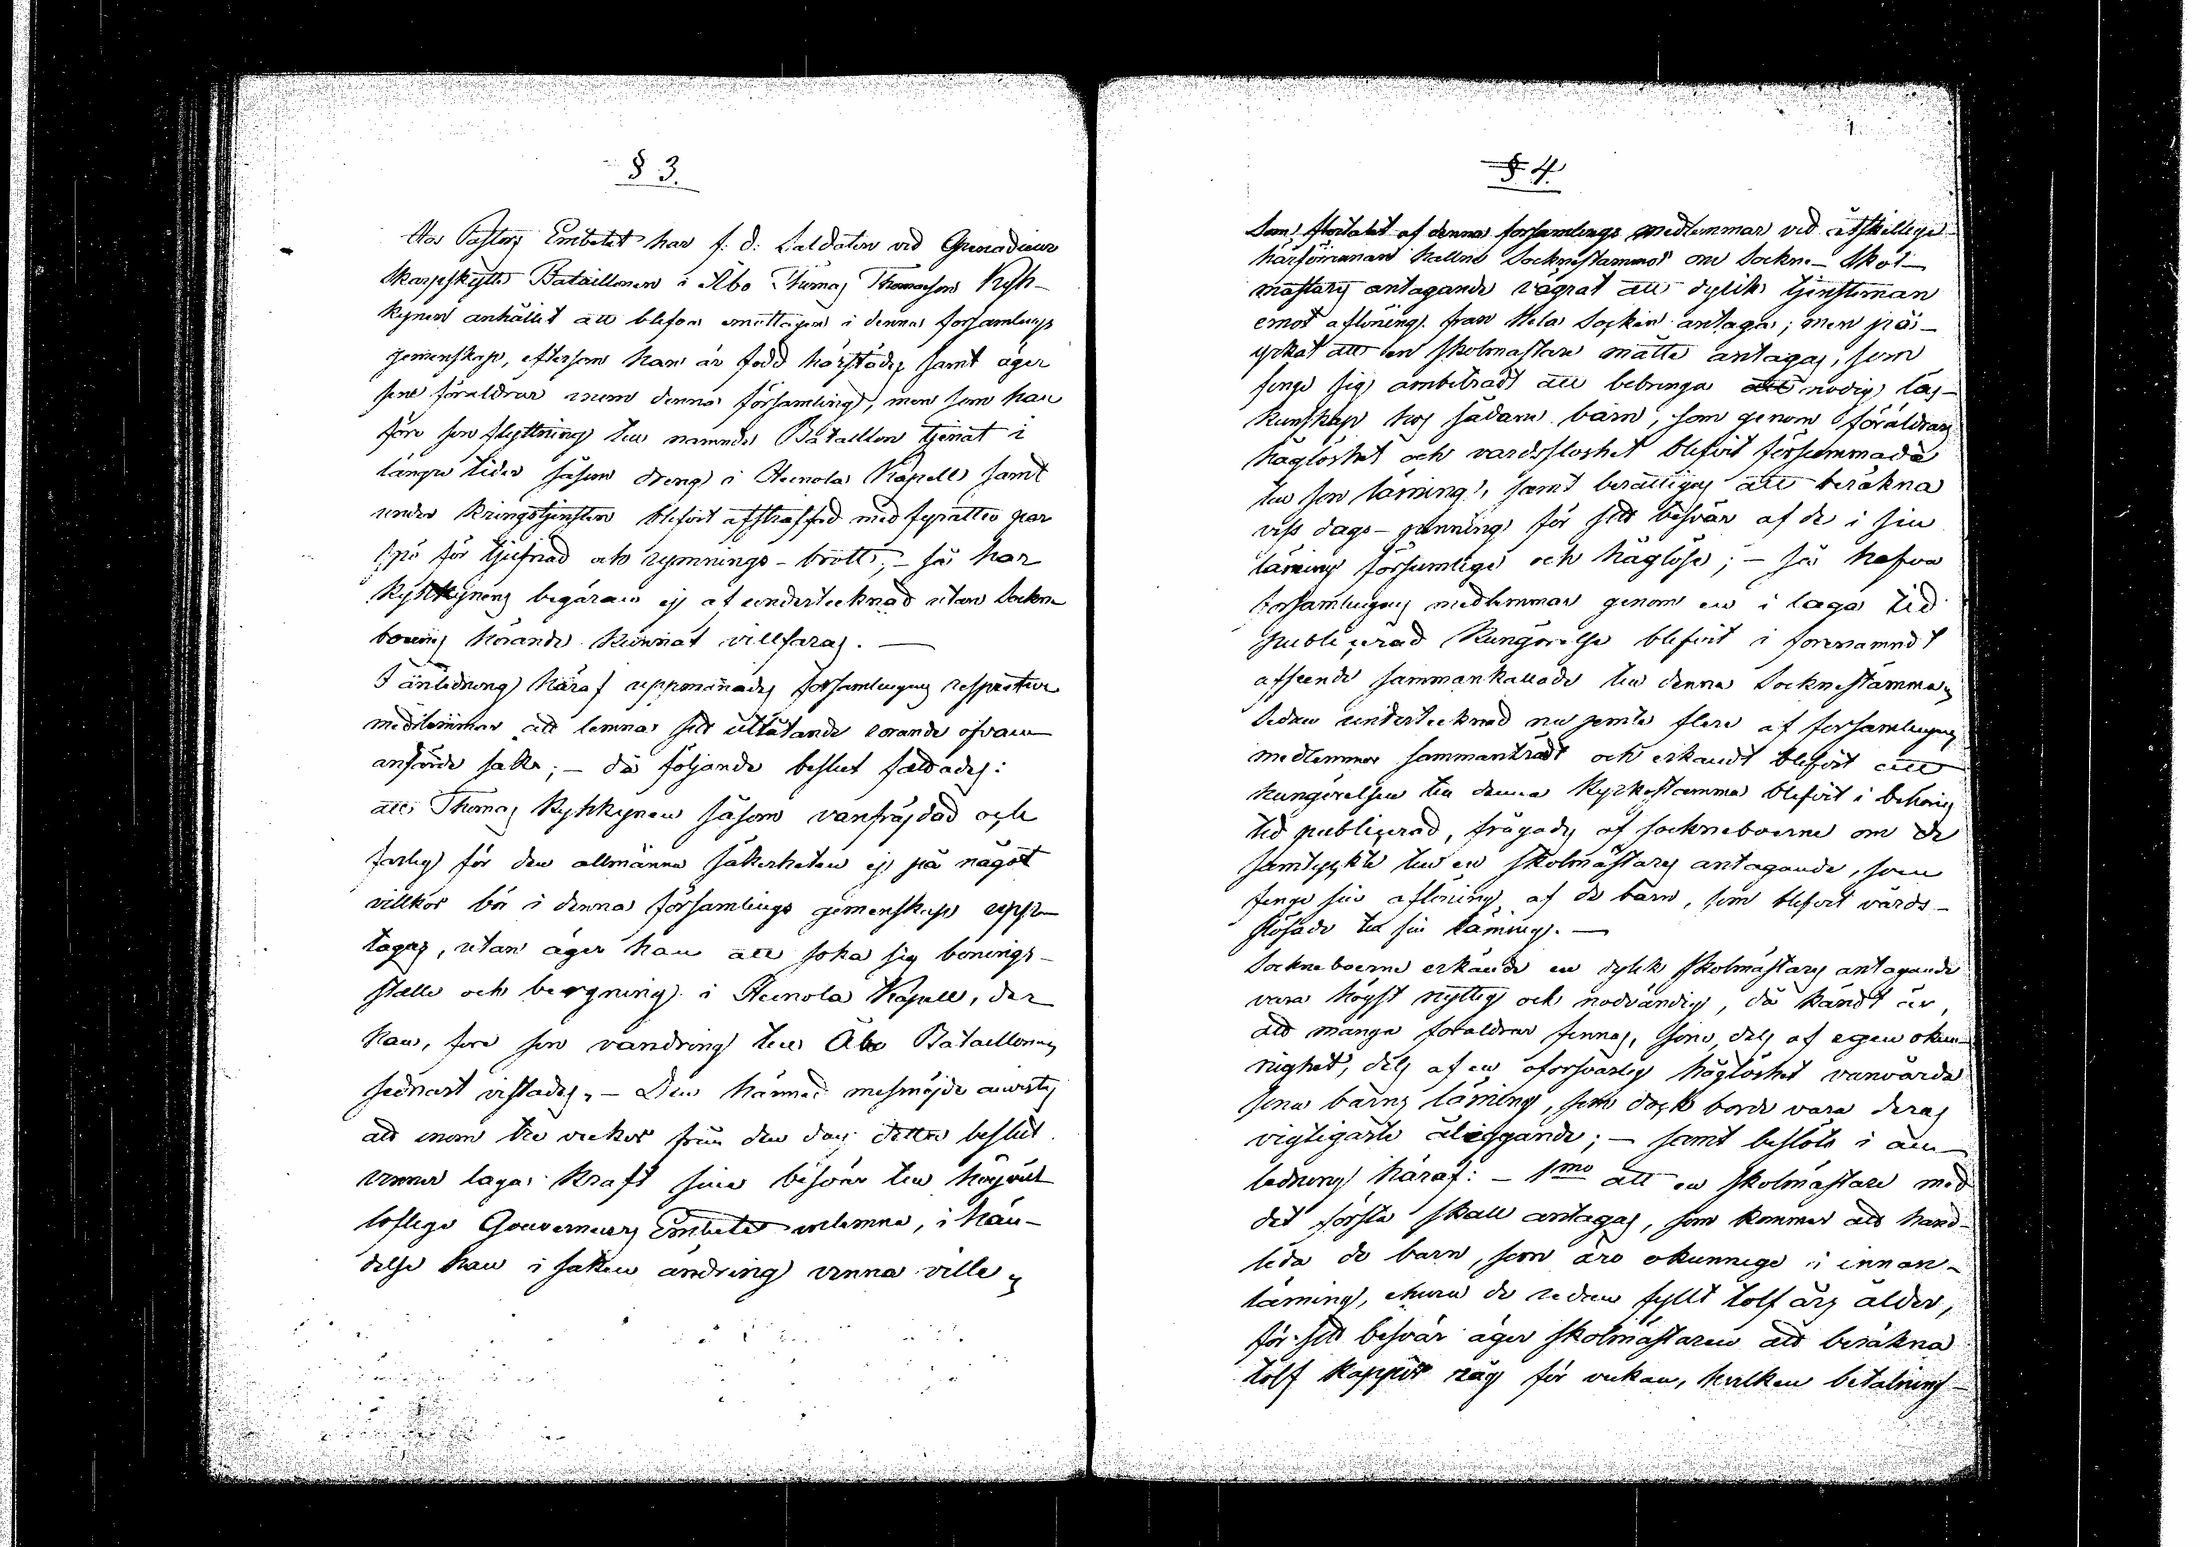 § 3.
Hos Pastors Embetet har f. d. Saldaten vid Grenadieur
Skarpskytte Bataillonen i Åbo Thomas Thomasson Kyh-
kynen anhållit att blifva emottagen i denna församlings
gemenskap, eftersom han är född härstädes samt äger
sine föräldrar inom denna församling, men som han
före sin flyttning till namnde Bataillon tjenat i
längre tider såsom dreng i Heinola Kapell samt
under Krigstjensten blifvit afstraffad med fyratio par
spö för tjufnad och rymnings-brott; - så har
Kyhkynens begäran ej af undertecknad utan Sockne
boernes hörande kunnat villfaras. —
I anledning häraf uppmanades församlingens respective
medlemmar att lemna sitt utlåtande rörande ofvan
anförde sake; - då följande beslut fattades:
att Thomas Kyhkynen såsom vanfräjdad och
farlig för den allmänna säkerheten ej på något
villkor bör i denna församlings gemenskap upp-
tagas, utan äger han att söka sig bonings-
ställe och bergning i Heinola Kapell, der
han, före sin vandring till Åbo Bataillonen
sednast vistades. - Den härmed misnöjde anvistes
att inom tre veckor från den dag detta beslut
vinner laga kraft sine besvär till högväl
loflige Gouverneurs Embetet inlemna, i hän-
delse han i saken ändring vinna ville
§ 4.
Som flertalet af denna församlings medlemmar vid åtskillige
härförinnan hallne Socknestämmor om Sockne-Skol-
mästares antagande vägrat att dylik tjensteman
emot aflöning från hela Socken antaga; men på-
yrkat att en skolmästare måtte antagas, som
finge sig ombetrodt att bebringa att nödig läs-
kunskap hos sådane barn, som genom föräldrars
håglöshet och vårdslöshet blifvit försummade
till sin läsning, samt berättigas att beräkna
viss dags-penning för sitt besvär af de i sin
läsning försumlige och håglöse; - så hafva
församlingens medlemmar genom en i laga tid
publicerad Kungörelse blifvit i förenämndt
afseende sammankallade till denna Socknestämma
Sedan undertecknad nu jemte flere af församlingens
medlemmar sammanträdt och erkändt blifvit att
kungörelsen till denna Kyrkostämma blifvit i behörig
tid publicerad, frågades af sockneboerne om de
samtyckte till en skolmästares antagande, som
finge sin aflöning af de barn, som blifvit vårds-
lösade till sin läsning. —
Sockneboerne erkände en dylik skolmästares antagande
vara högst nyttig och nödvändig, då kändt är,
att många föräldrar finnas, som, dels af egen okun-
nighet, dels af en oförsvarlig håglöshet vanvårda
sina barns läsning, som dock borde vara deras
vigtigaste åliggande; - samt beslöts i an-
ledning häraf: - 1mo att en skolmästare med
det första skall antagas, som kommer att hand-
leda de barn, som äro okunnige i innan-
läsning, ehuru de redan fyllt tolf års ålder,
för sitt besvär äger skolmästaren att beräkna
tolf kappor råg för veckan, hvilken betalning-